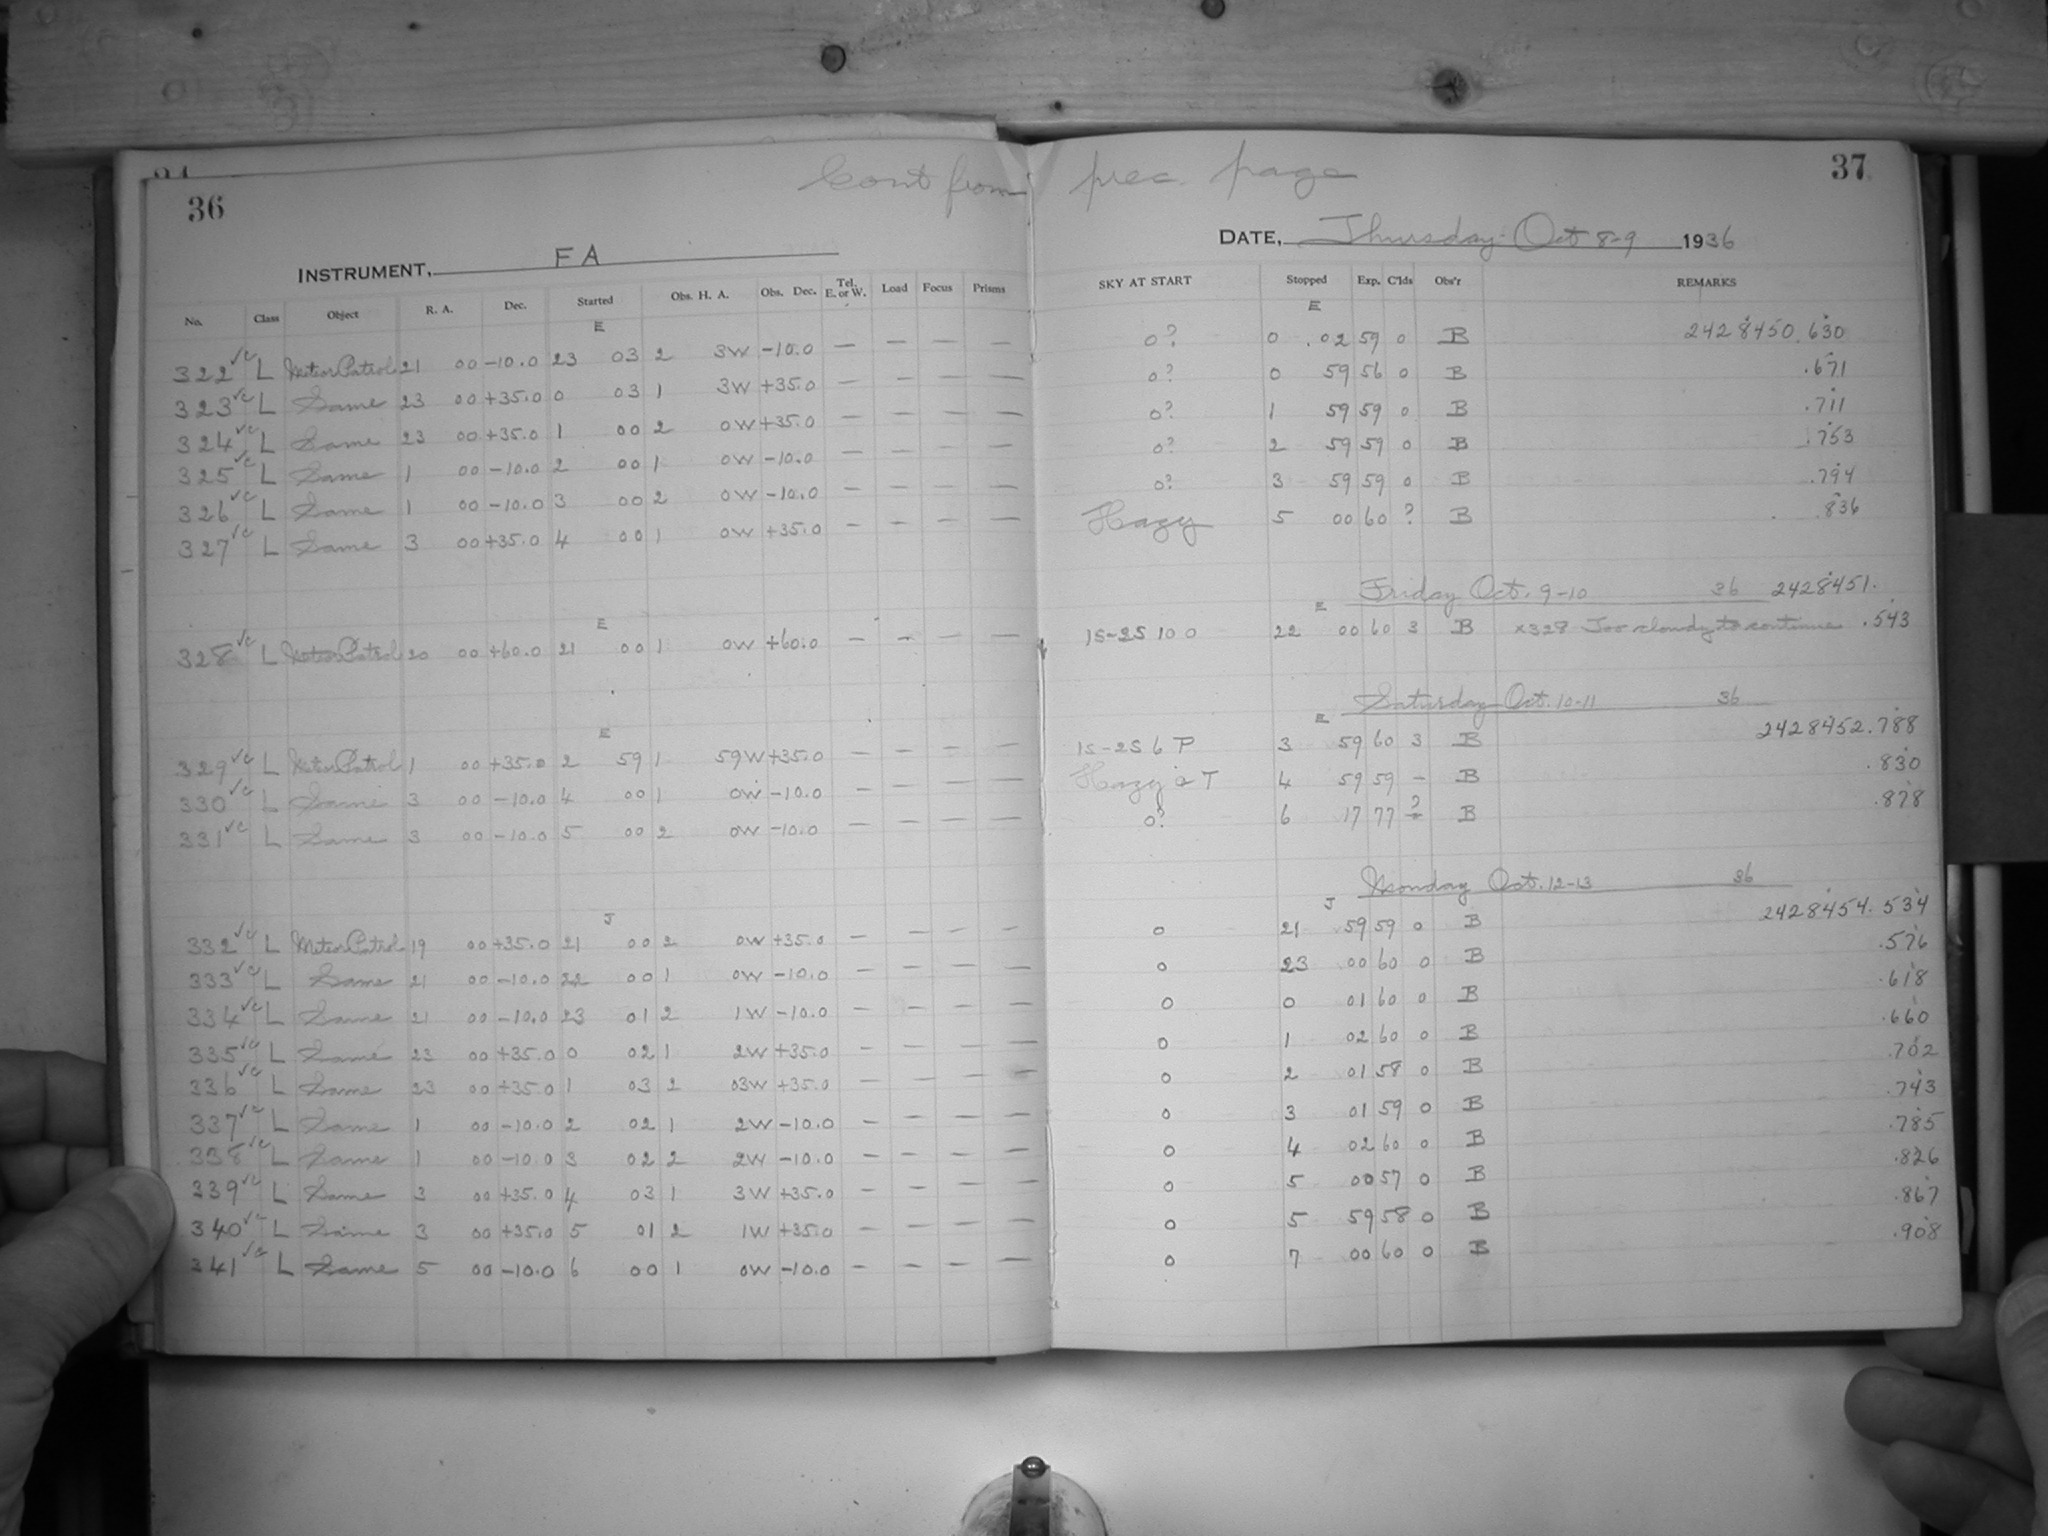 36 Cont from prec. page 37
INSTRUMENT, FA DATE, Thursday Oct 8-9 1936
No. Class Object R. A. Dec. Started Obs. H. A. Obs. Dec. Tel. E. or W. Load Focus Prisms SKY AT START Stopped Exp. C'lds Obs'r REMARKS
E E
322 √c L Meteor Patrol 21 00 -10.0 23 03 2 3W -10.0 — — — — 0? 0 02 59 0 B 2428450.630
323 √c L Same 23 00 +35.0 0 03 1 3W +35.0 — — — — 0? 0 59 56 0 B .671
324 √c L Same 23 00 +35.0 1 00 2 0W +35.0 — — — — 0? 1 59 59 0 B .711
325 √c L Same 1 00 -10.0 2 00 1 0W -10.0 — — — — 0? 2 59 59 0 B .753
326 √c L Same 1 00 -10.0 3 00 2 0W -10.0 — — — — 0? 3 59 59 0 B .794
327 √c L Same 3 00 +35.0 4 00 1 0W +35.0 — — — — Hazy 5 00 60 ? B .836
Friday Oct. 9-10 36 2428451.
E E
328 √c L Meteor Patrol 20 00 +60.0 21 00 1 0W +60.0 — — — — 1S-2S 10 0 22 00 60 3 B x328 Too cloudy to continue .543
Saturday Oct. 10-11 36
E E
329 √c L Meteor Patrol 1 00 +35.0 2 59 1 59W +35.0 — — — — 1S-2S 6 P 3 59 60 3 B 2428452.788
330 √c L Same 3 00 -10.0 4 00 1 0W -10.0 — — — — Hazy & T 4 59 59 — B .830
331 √c L Same 3 00 -10.0 5 00 2 0W -10.0 — — — — 0? 6 17 77 ? B .878
Monday Oct. 12-13 36
J J
332 √c L Meteor Patrol 19 00 +35.0 21 00 2 0W +35.0 — — — — 0 21 59 59 0 B 2428454.534
333 √c L Same 21 00 -10.0 22 00 1 0W -10.0 — — — — 0 23 00 60 0 B .576
334 √c L Same 21 00 -10.0 23 01 2 1W -10.0 — — — — 0 0 01 60 0 B .618
335 √c L Same 23 00 +35.0 0 02 1 2W +35.0 — — — — 0 1 02 60 0 B .660
336 √c L Same 23 00 +35.0 1 03 2 03W +35.0 — — — — 0 2 01 58 0 B .702
337 √c L Same 1 00 -10.0 2 02 1 2W -10.0 — — — — 0 3 01 59 0 B .743
338 √c L Same 1 00 -10.0 3 02 2 2W -10.0 — — — — 0 4 02 60 0 B .785
339 √c L Same 3 00 +35.0 4 03 1 3W +35.0 — — — — 0 5 00 57 0 B .826
340 √c L Same 3 00 +35.0 5 01 2 1W +35.0 — — — — 0 5 59 58 0 B .867
341 √c L Same 5 00 -10.0 6 00 1 0W -10.0 — — — — 0 7 00 60 0 B .908